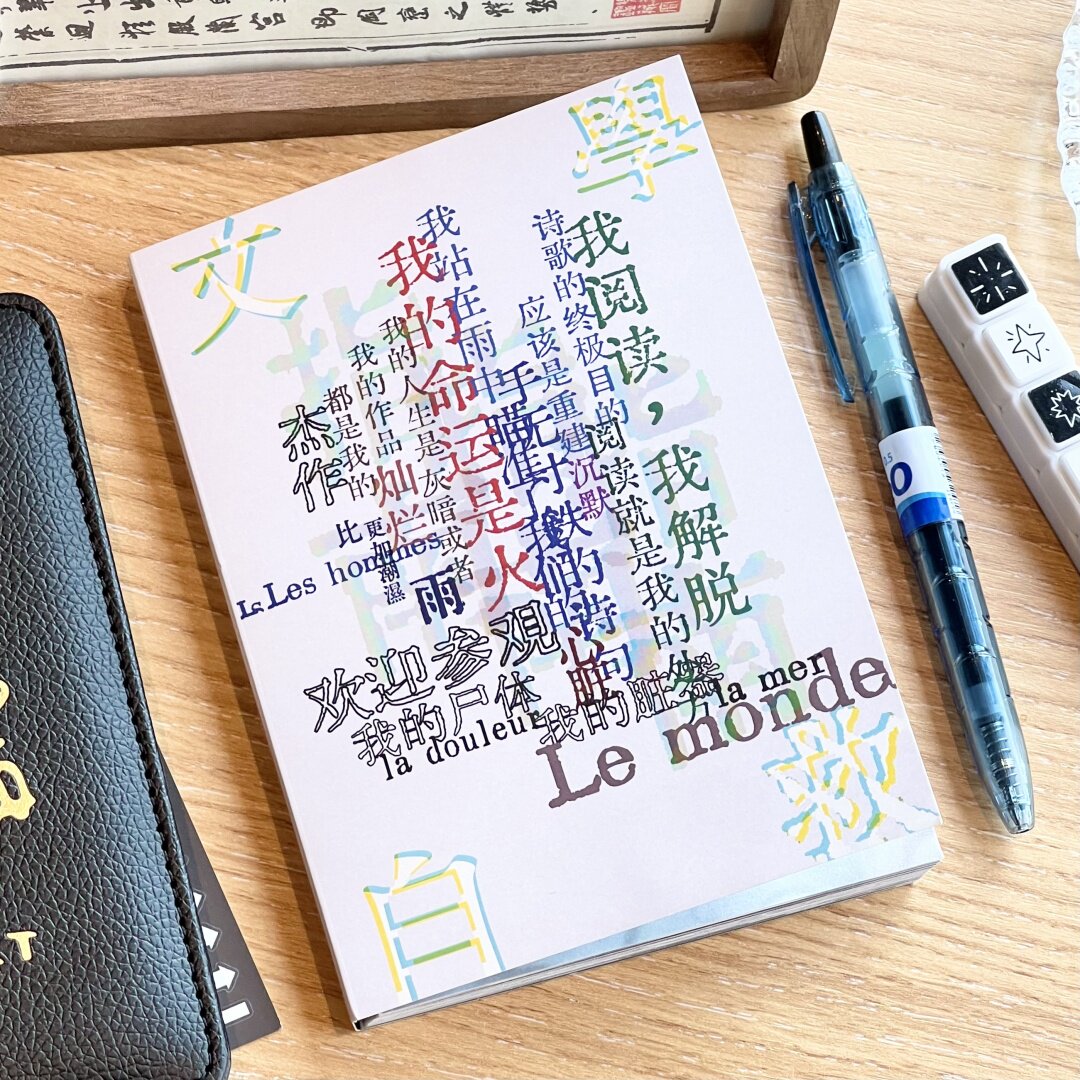 學
文
我阅读，
我解脱
诗歌的终极目的
应该是重建
沉默
阅读就是我的
我站在雨中
手无寸铁的诗句
瞄准
我们的
心脏
我的命运是火
灿烂
我的人生是灰暗或者
我的作品
都是我的
杰作
比
更加潮濕
雨
Les hommes
欢迎参观
我的尸体
我的脏器
la douleur
la mer
Le monde
救
自
0.5